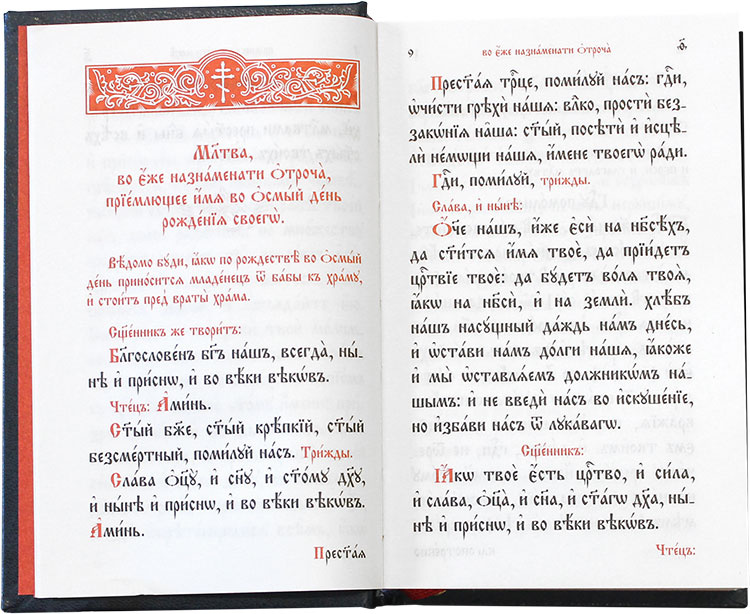 Мл҃тва,
во є҆́же назнаменати ѻ҆троча̀,
прїе́млющее и҆́мя во ѻ҆смы́й де́нь
рожде́нїѧ своегѡ̀.
Вѣ́домо бꙋ́ди, ꙗ҆́кѡ по рождествѣ̀ во ѻ҆смы́й
де́нь прино́сится младе́нец ѿ ба́бы къ хра́мꙋ,
и҆ стои́тъ пред̾ враты̀ хра́ма.
Сщ҃е́нникъ же твори́тъ:
Бл҃гослове́нъ бг҃ъ на́шъ, всегда̀, ны́-
нѣ и҆ при́снѡ, и҆ во вѣ́ки вѣкѡ́въ.
Чте́цъ: А҆ми́нь.
Ст҃ы́й бж҃е, ст҃ы́й крѣ́пкїй, ст҃ы́й
безсме́ртный, поми́лꙋй на́съ. Три́жды.
Сла́ва ѻ҆ц҃ꙋ̀, и҆ сн҃ꙋ, и҆ ст҃о́мꙋ дх҃ꙋ,
и҆ ны́нѣ и҆ при́снѡ, и҆ во вѣ́ки вѣкѡ́въ.
А҆ми́нь.
Прест҃а́ѧ
во є҆́же назна́менати ѻ҆троча̀
Прест҃а́ѧ трⷪ҇це, поми́лꙋй на́съ: гдⷭ҇и,
ѡ҆чи́сти грѣхѝ на́шѧ: влⷣко, простѝ без-
закѡ́нїѧ на̑ша: ст҃ы́й, посѣтѝ и҆ и҆сцѣ-
лѝ не́мѡщи на́шѧ, и҆́мене твоегѡ̀ ра́ди.
Гдⷭ҇и, поми́лꙋй, три́жды.
Сла́ва, и҆ ны́нѣ:
Ѻ҆́ч҃е на́шъ, и҆́же є҆сѝ на нб҃сѣ́хъ,
да ст҃и́тсѧ и҆́мѧ твоѐ, да прїи́детъ
црⷭ҇твїе твоѐ: да бꙋ́детъ во́лѧ твоѧ̀,
ꙗ҆́кѡ на нб҃сѝ, и҆ на землѝ. хлѣ́бъ
на́шъ насꙋ́щный да́ждь на́мъ дне́сь,
и҆ ѡ҆ста́ви на́мъ до́лги на́шѧ, ꙗ҆́коже
и҆ мы̀ ѡ҆ставлѧ́ем должникѡ́мъ на́-
шымъ: и҆ не введѝ на́съ во и҆скꙋше́нїе,
но и҆зба́ви на́съ ѿ лꙋка́вагѡ.
Сщ҃е́нникъ:
Ꙗ҆́кѡ твоѐ є҆́сть црⷭ҇тво, и҆ си́ла,
и҆ сла́ва, ѻ҆ц҃а̀, и҆ сн҃а, и҆ ст҃а́гѡ дх҃а, ны́-
нѣ и҆ при́снѡ, и҆ во вѣ́ки вѣкѡ́въ.
Чте́цъ: